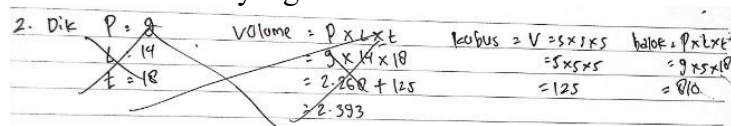 2. Dik P = 9
L = 14
t = 18
Volume = P x L x t
= 9 x 14 x 18
= 2.268 + 125
= 2.393
kubus = V = s x s x s
= 5 x 5 x 5
= 125
balok = P x L x t
= 9 x 5 x 18
= 810